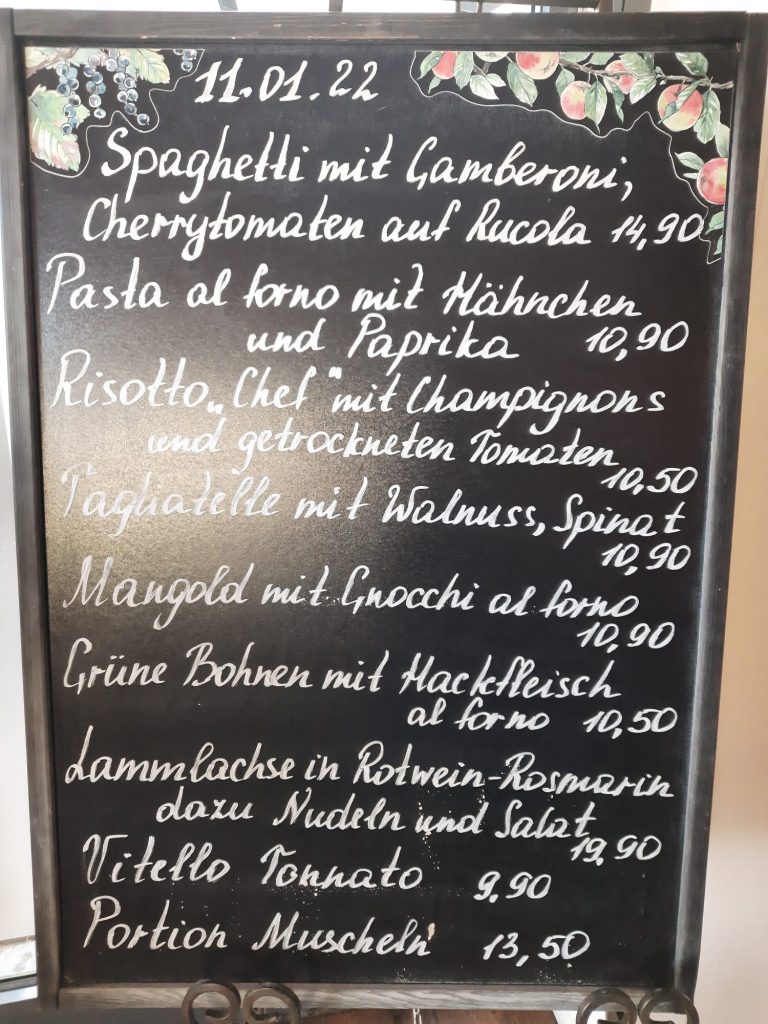 11.01.22
Spaghetti mit Gamberoni,
Cherrytomaten auf Rucola 14,90
Pasta al forno mit Hähnchen
und Paprika 10,90
Risotto „Chef" mit Champignons
und getrockneten Tomaten
10,50
Tagliatelle mit Walnuss, Spinat
10,90
Mangold mit Gnocchi al forno
10,90
Grüne Bohnen mit Hackfleisch
al forno 10,50
Lammlachse in Rotwein-Rosmarin
dazu Nudeln und Salat
19,90
Vitello Tonnato 9,90
Portion Muscheln 13,50